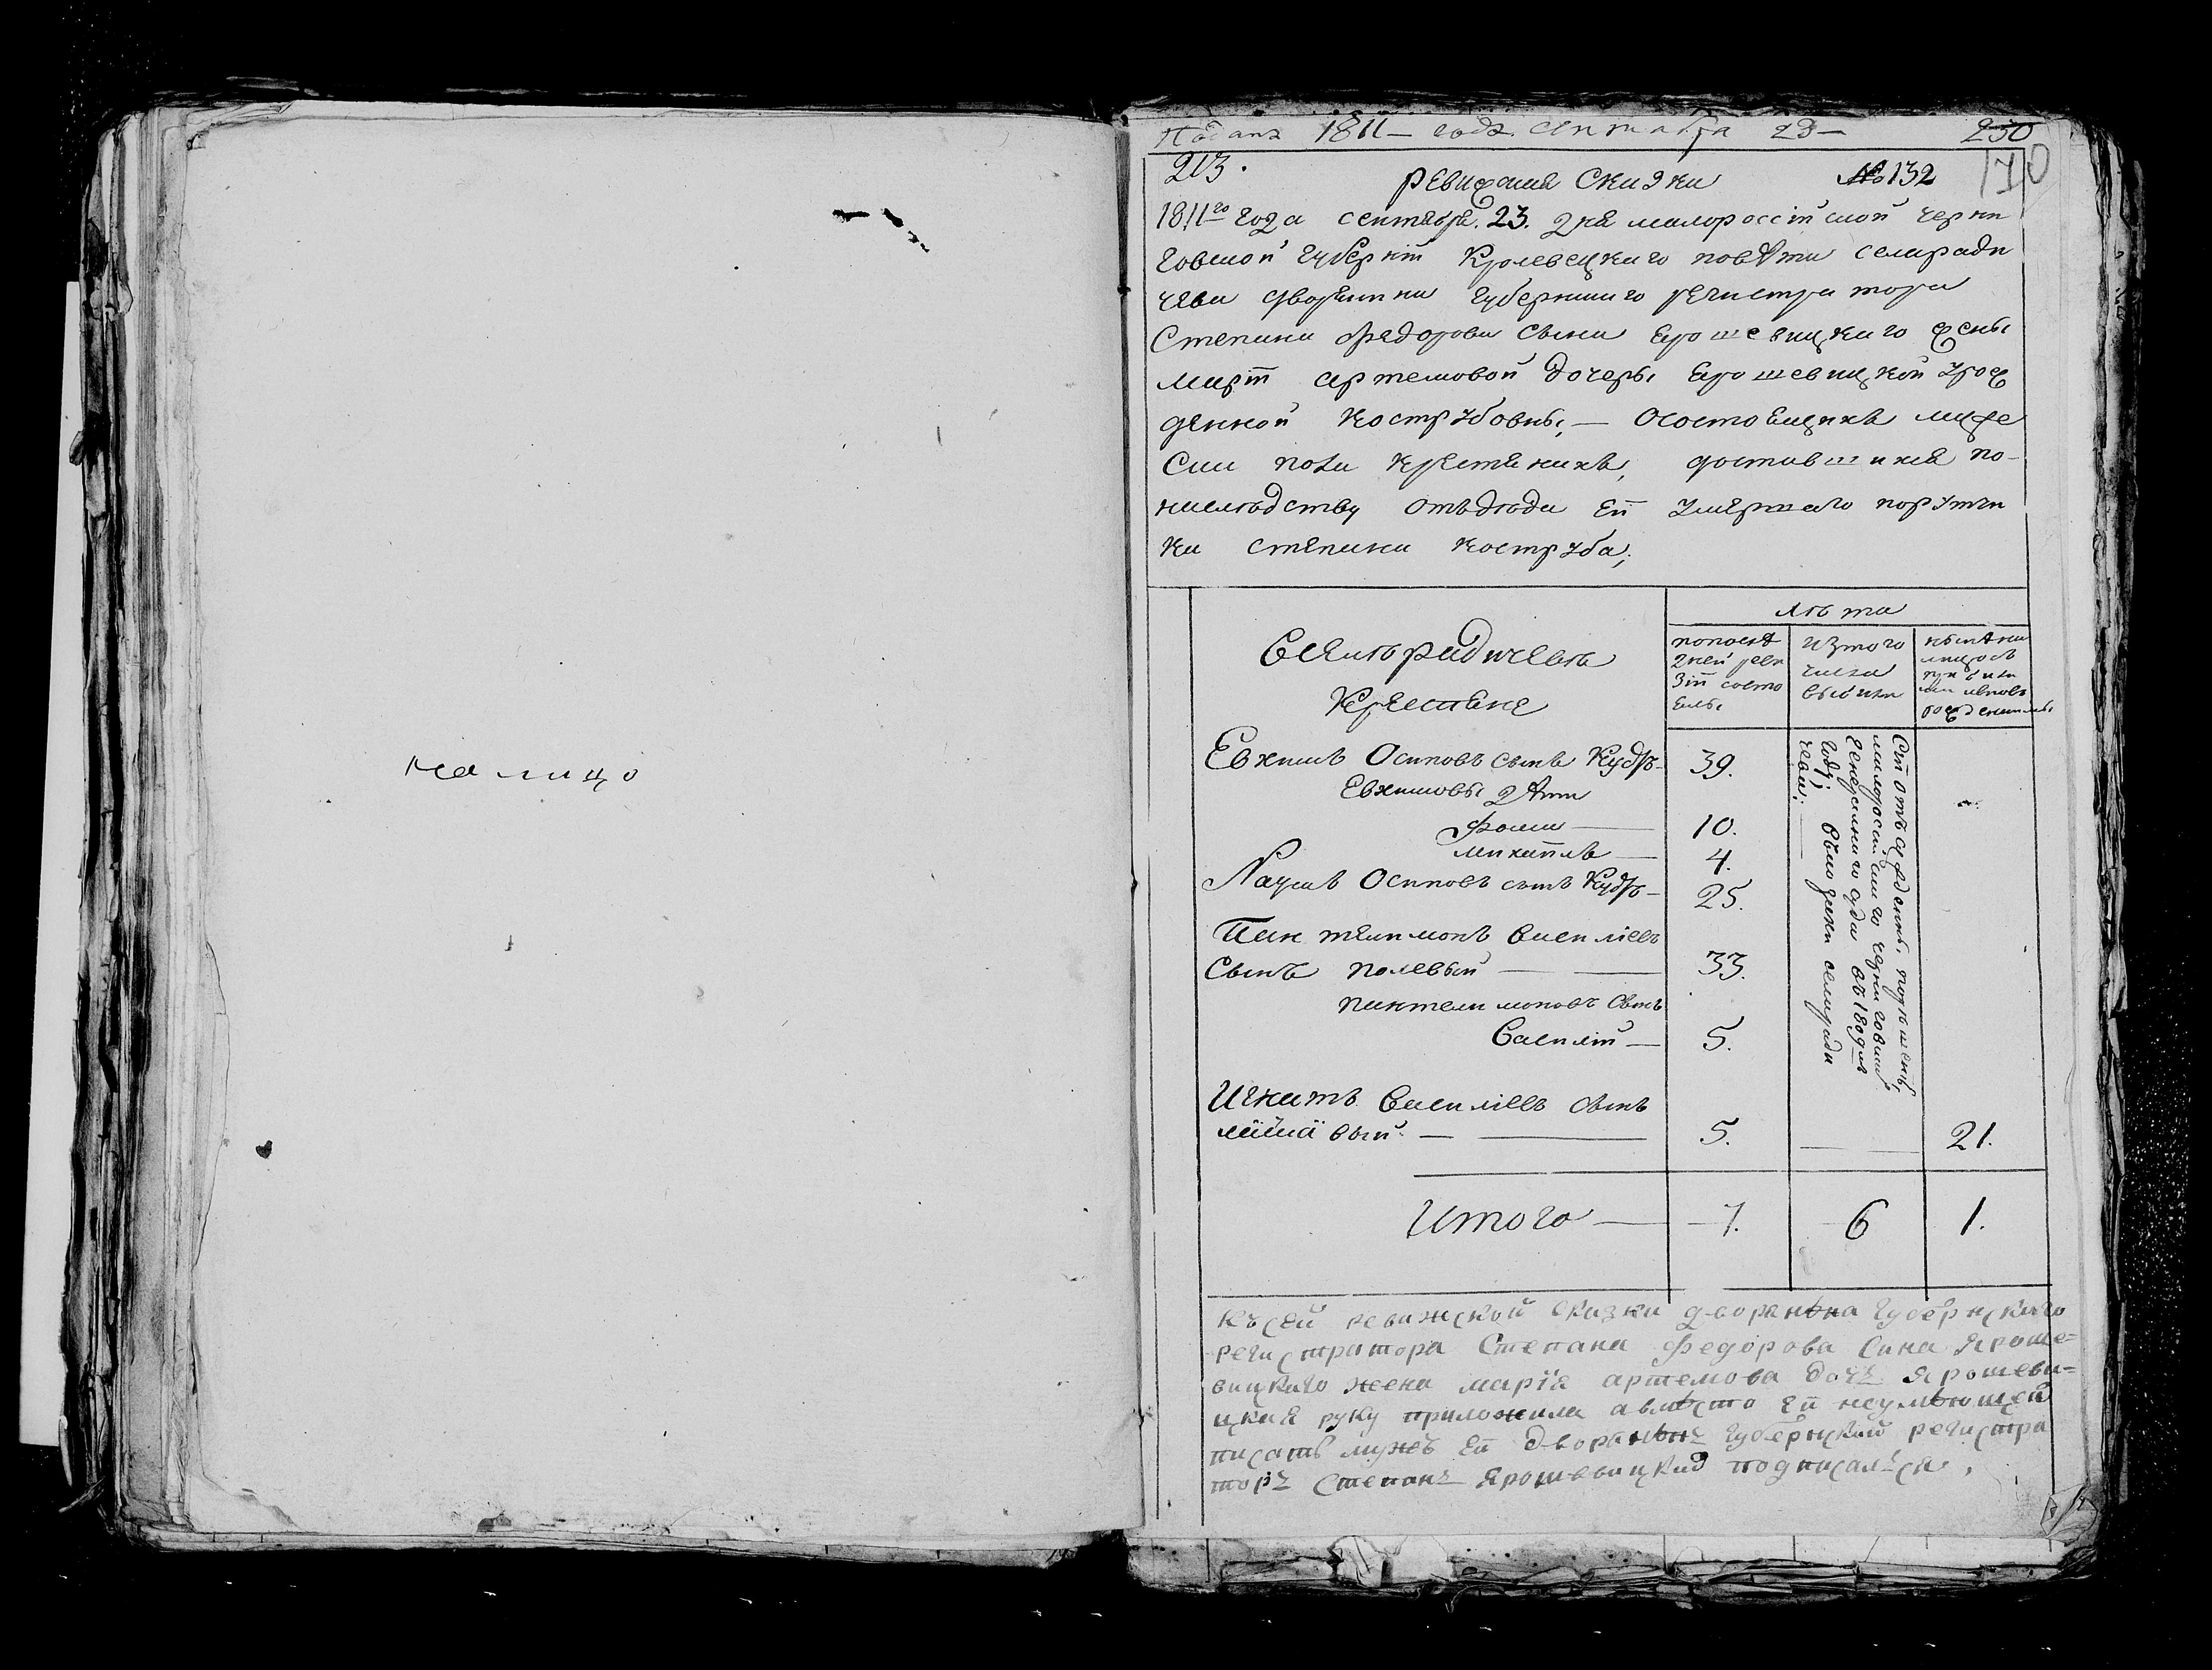 на лицо
Поданъ 1811 – года сентября 23 –
230
213.
Ревижская Сказка № 132
170
1811го года сентября 23. дня малороссійской черни
говской губерніи Кролевецкаго повѣта села ради
чева дворянина губернскаго регистратора
Степана Федорова сына Ярошевицкаго жены
маріи артемовой дочеры Ярошевицкой урож
денной кострубовны, — Осостоящихъ мужес
каго пола крестянихъ, доставшихся по-
наслѣдству отъдяди еи умершаго поручи
ка степана коструба;
Лѣта
Селѣ радичевѣ
Крестяне
попослѣ
дней реви
зіи состо
ялы
изтого
числа
выбили
нынѣ на
лицось
Евхимъ Осиповъ сынъ Кудр- 39.
Евхимовы дѣти
Фома — 10.
михайлъ — 4.
Наумъ Осиповъ сынъ Кудр- 25.
Пантелимонъ василіевъ
сынъ полевый — 33.
пантелимоновъ сынъ
Василій — 5.
Игнатъ Василіевъ сынъ
— 5. — 21.
Итого — 7. 6 1.
годъ въ 180
Късей ревижской сказки дворянѣна губернскаго
регистратора Степана Федорова Сина Яроше=
вицкаго жена марія артемова дочъ Ярошеви=
цкая руку приложила авмѣсто еи неумѣющей
писать мужъ еи дворянѣнъ губернский регистра
торъ Степанъ Ярошевицкий подписалься.